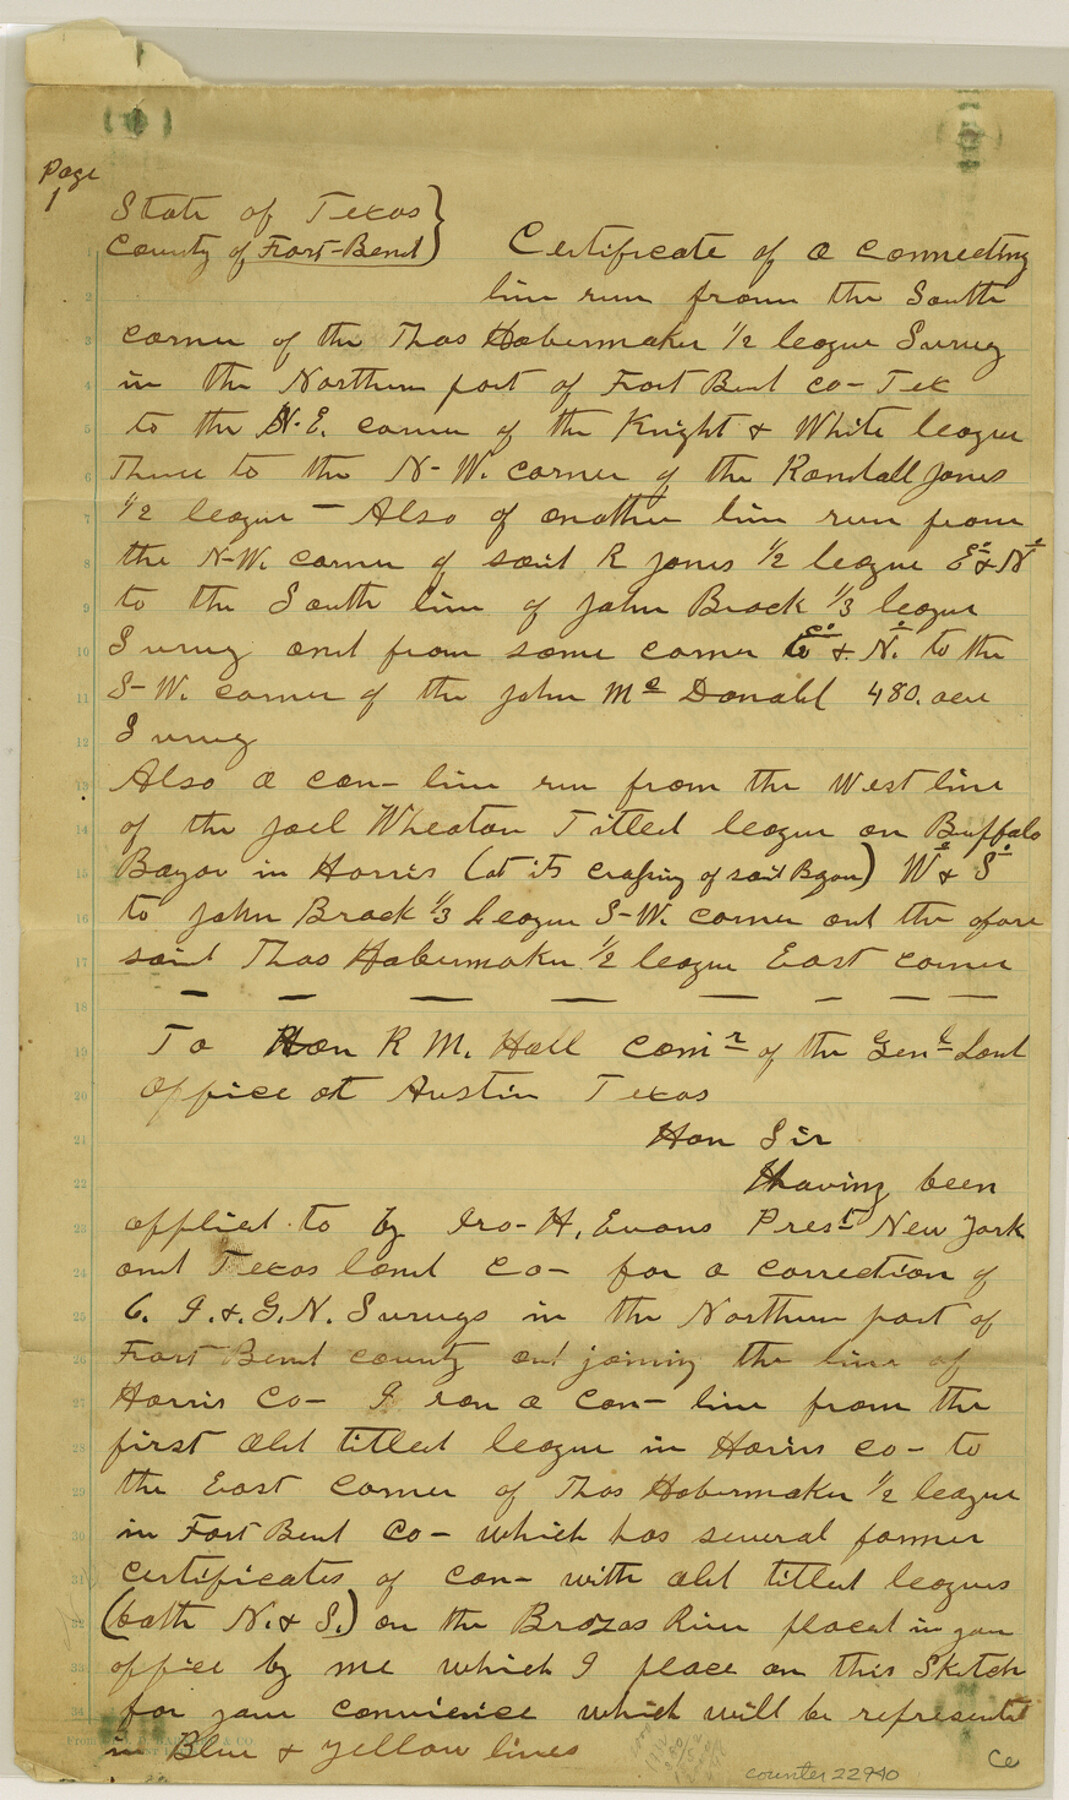 Page
1
State of Texas
County of Fort-Bend
Certificate of a connecting
line run from the South
corner of the Thos Habermaker 1/2 league Survey
in the Northern part of Fort Bend co- Tex
to the N-E. corner of the Knight & White league
Thence to the N-W. corner of the Randall Jones
1/2 league - Also of another line run from
the N-W. corner of said R Jones 1/2 league E. & N.
to the South line of John Brock 1/3 league
Survey and from same corner E. & N. to the
S-W. corner of the John Mc Donald 480. acre
Survey
Also a con- line run from the West line
of the Joel Wheaton Titled league on Buffalo
Bayou in Harris (at its crossing of said Bayou) W. & S.
to John Brock 1/3 League S-W. corner and the afore
said Thos Habermaker 1/2 league East corner
To Hon R M. Hall Comr of the Genl Land
Office at Austin Texas
Hon Sir
Having been
applied to by Ira-H. Evans Prest New York
and Texas land Co- for a correction of
6. I.&.G.N. Surveys in the Northern part of
Fort Bend county and joining the line of
Harris Co- I ran a con- line from the
first old titled league in Harris co- to
the East corner of Thos Habermaker 1/2 league
in Fort Bend Co- which has several former
certificates of con- with old titled leagues
(both N. & S.) on the Brozas River placed in your
office by me which I place on this Sketch
for your convienice which will be represented
in Blue & yellow lines
counter 22940